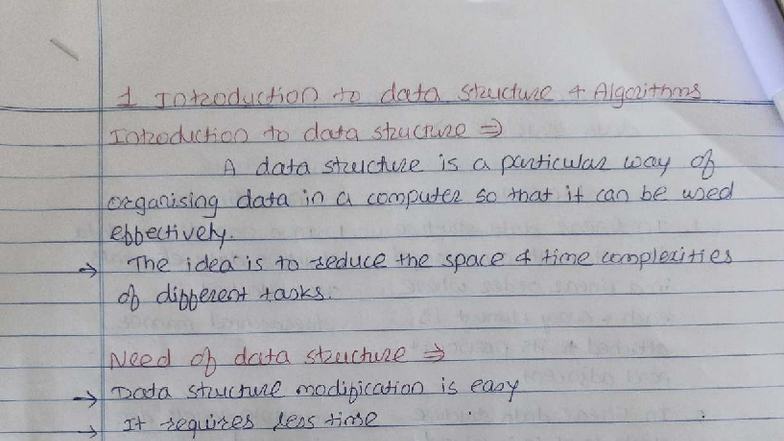 1 Introduction to data structure & Algorithms
Introduction to data structure ⇒
A data structure is a particular way of
organising data in a computer so that it can be used
effectively.
→ The idea is to reduce the space & time complexities
of different tasks.
Need of data structure ⇒
→ Data structure modification is easy
→ It requires less time